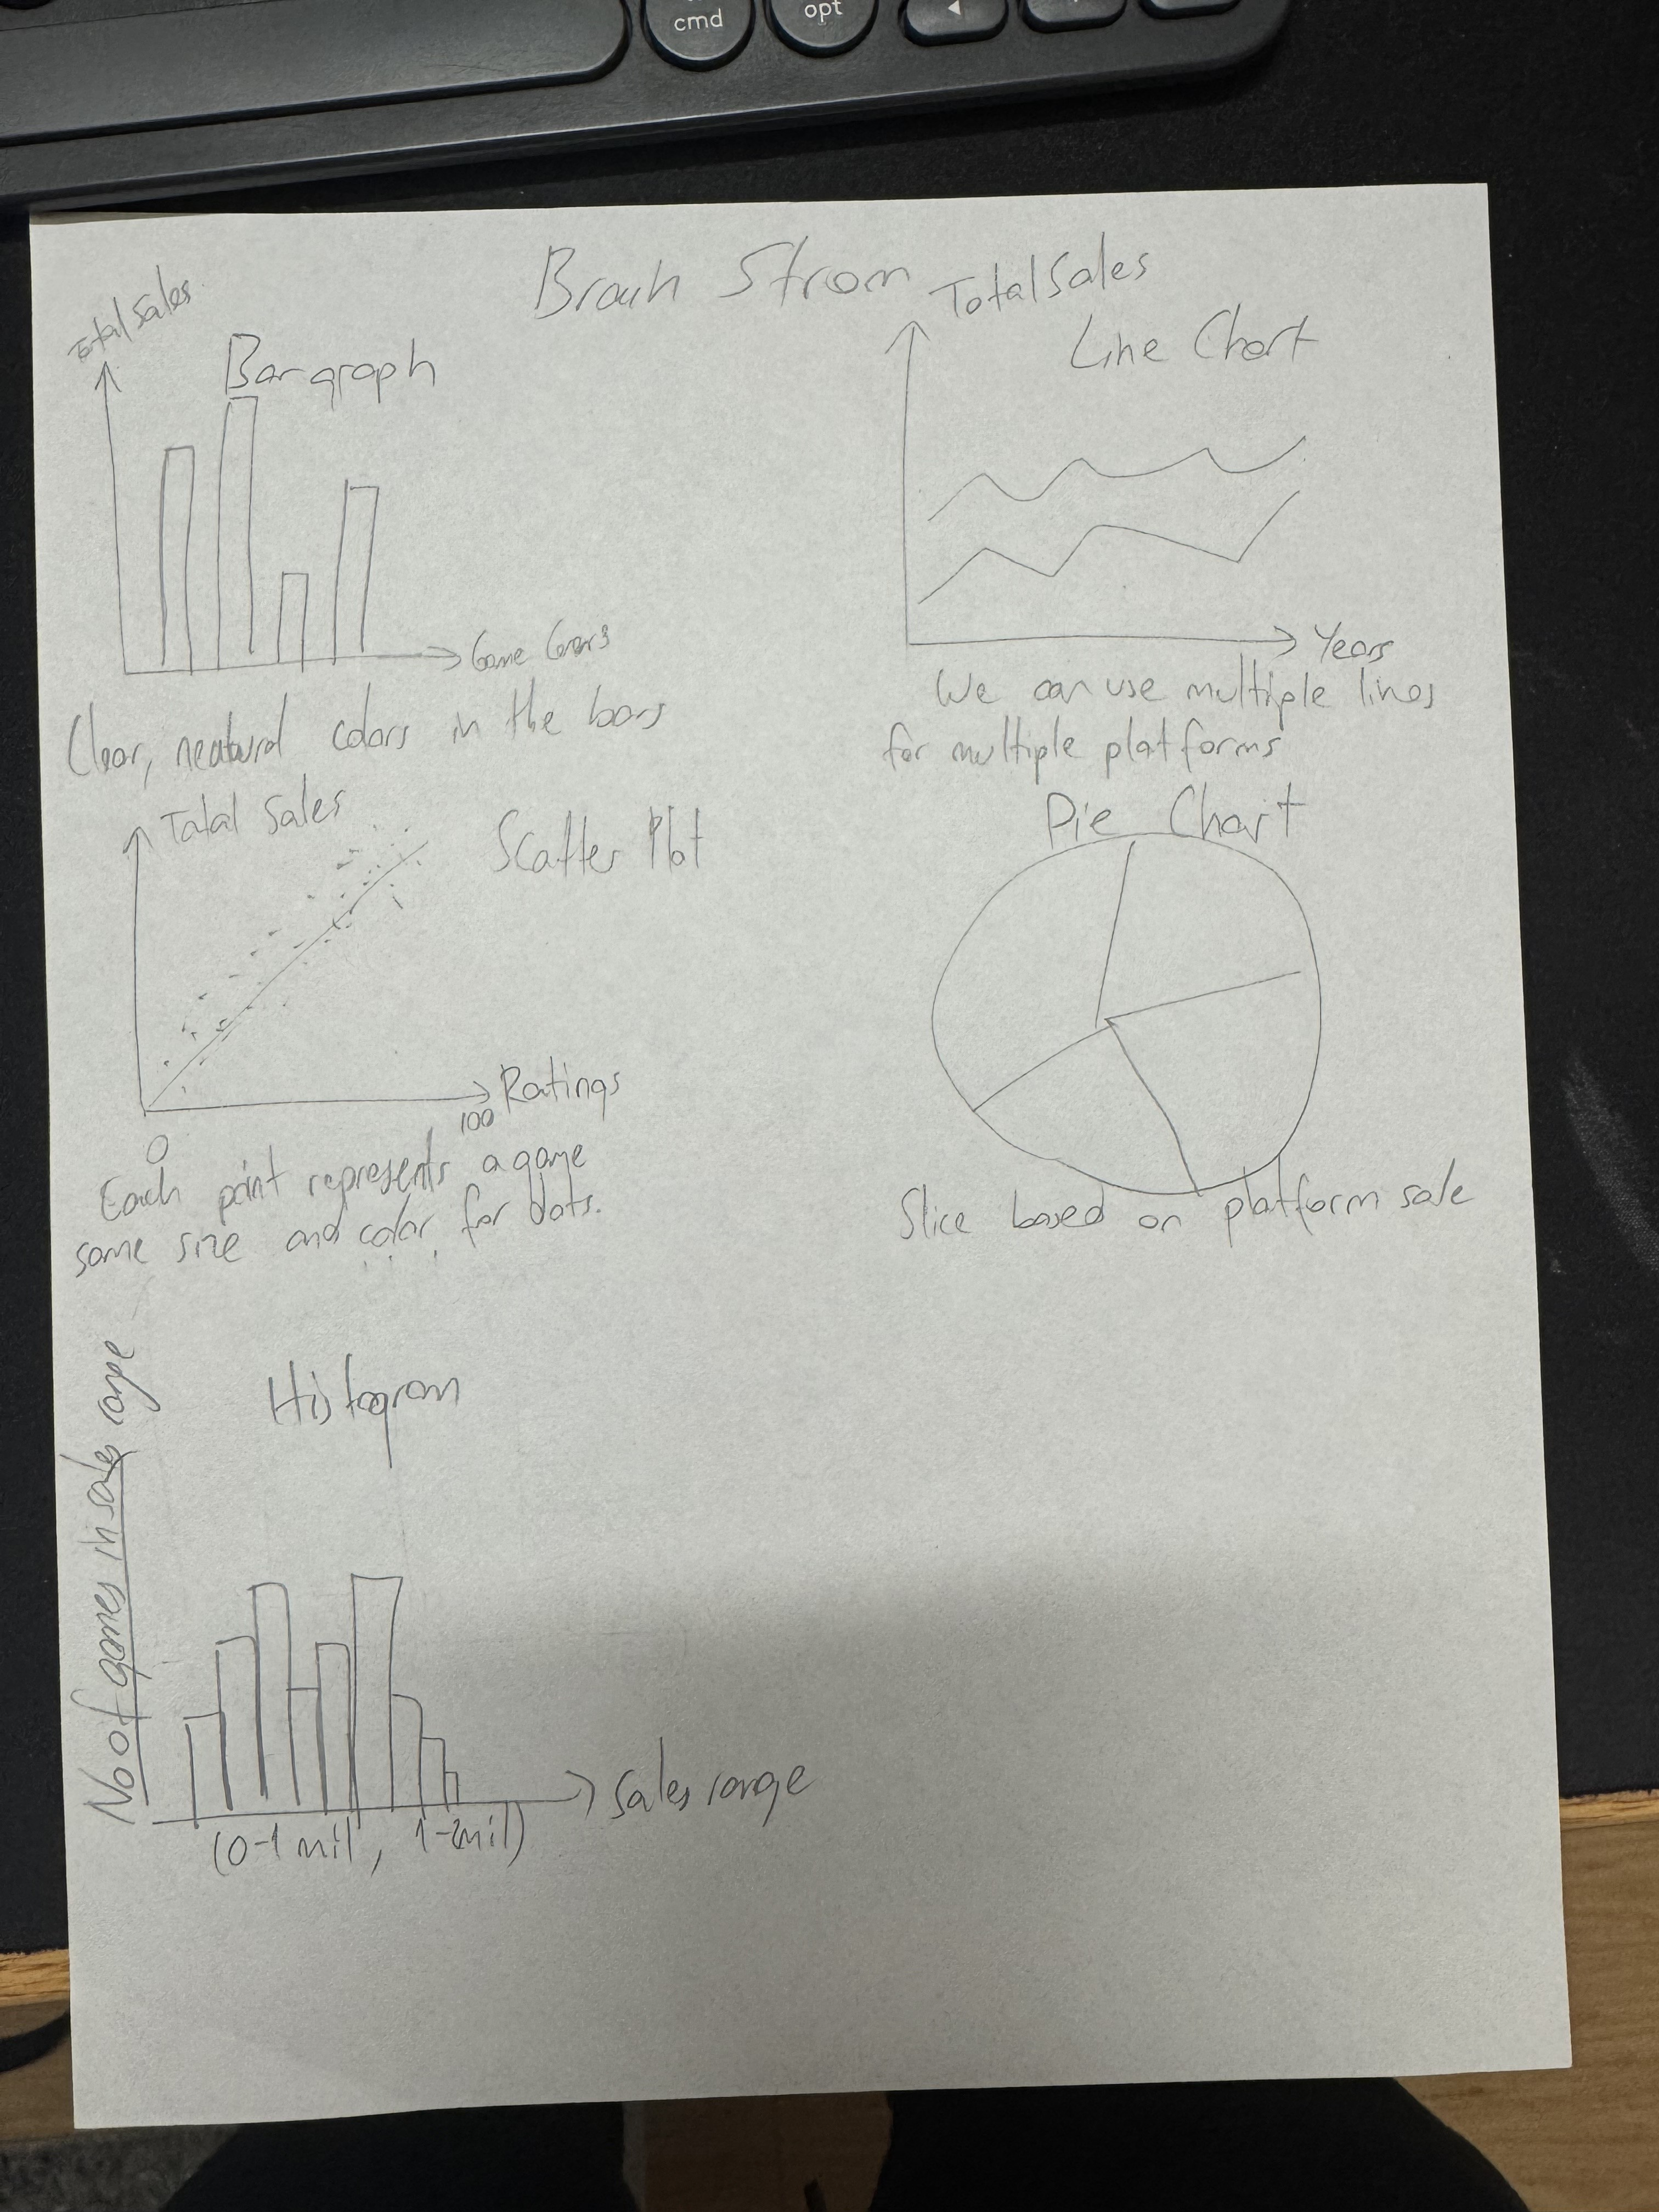 cmd
opt
Brain Strom
Total Sales
Bar graph
Game
Clear, neatural colors in the bars
Total Sales
Line Chart
Years
We can use multiple lines
for multiple platforms
Total Sales
Scatter Plot
Ratings
100
0
Each point represents a game
same size and color for dots.
Pie Chart
Slice based on platform sale
Histogram
No of games in sales range
Sales range
(0-1 mil, 1-2mil)